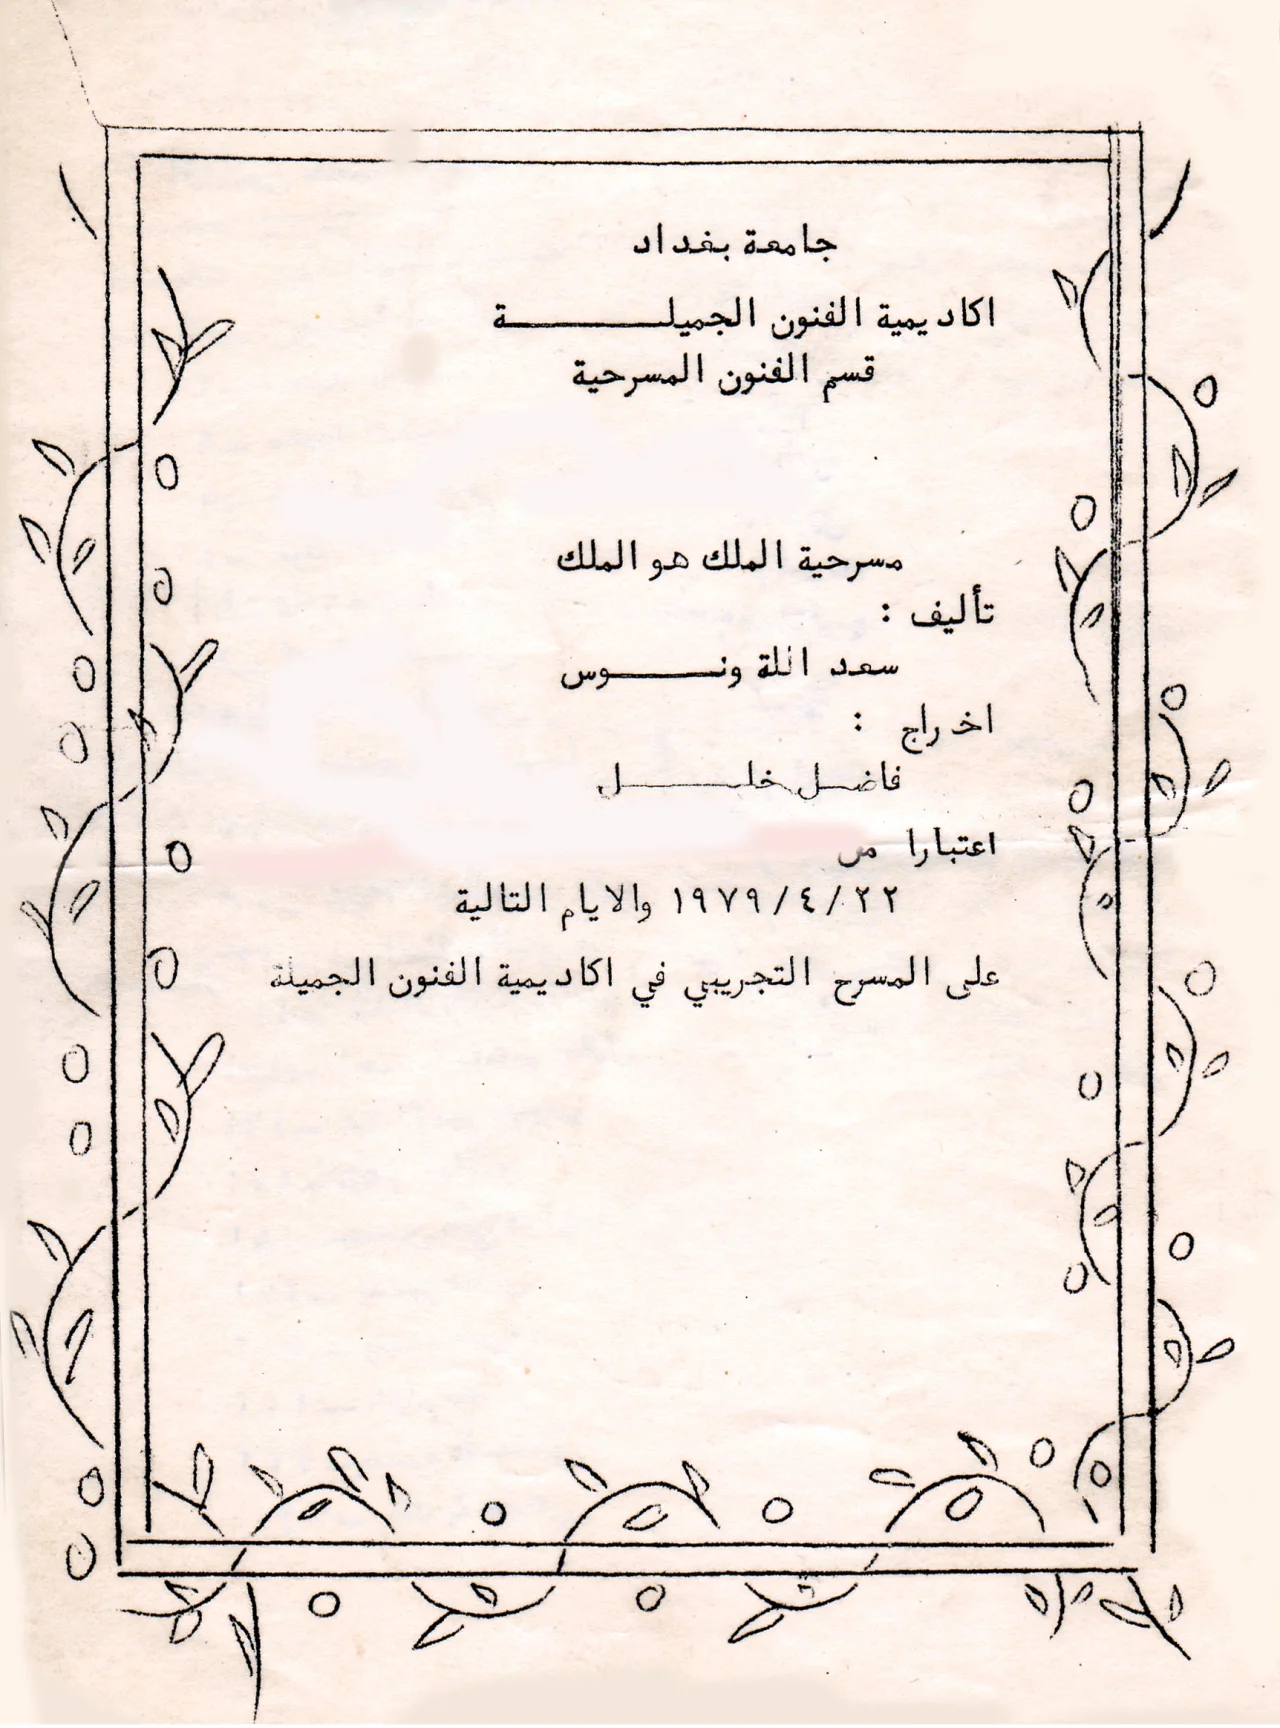 جامعة بغداد
اكاديمية الفنون الجميلـــــــة
قسم الفنون المسرحية
مسرحية الملك هو الملك
تأليف :
سعد اللة ونـــــوس
اخراج :
فاضـل خلـــــل
اعتبارا من
٢٢/٤/١٩٧٩ والايام التالية
على المسرح التجريبي في اكاديمية الفنون الجميلة